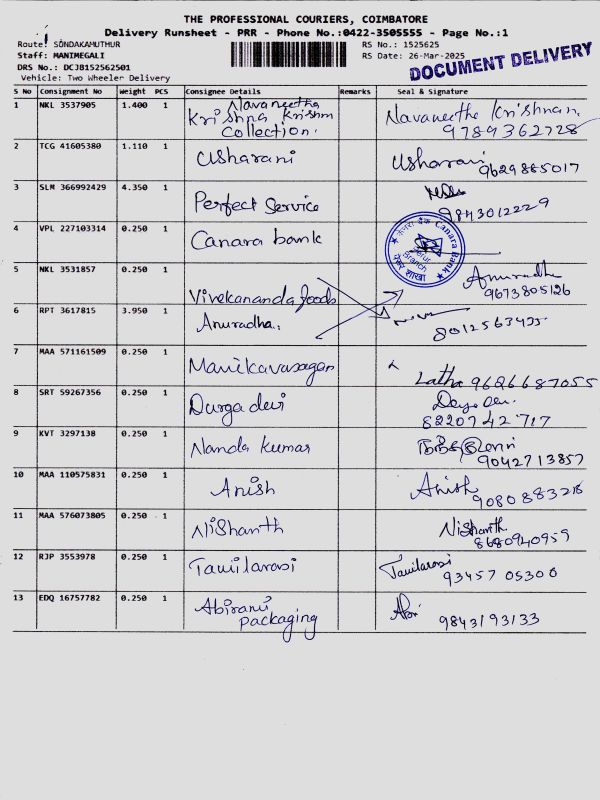 THE PROFESSIONAL COURIERS, COIMBATORE
Delivery Runsheet - PRR - Phone No.:0422-3505555 - Page No.:1
Route: SONDAKAMUTHUR
RS No.: 1525625
Staff: MANIMEGALI
RS Date: 26-Mar-2025
DRS No.: DCJ8152562501
Vehicle: Two Wheeler Delivery
DOCUMENT DELIVERY
S No Consignment No Weight PCS Consignee Details Remarks Seal & Signature
1 NKL 3537905 1.400 1 Navaneetha
Krishna Krishna
Collection. Navaneetha Krishnan
9789362728
2 TCG 41605380 1.110 1 Usharani Usharani
9629885017
3 SLM 366992429 4.350 1 Perfect Service
9843012229
4 VPL 227103314 0.250 1 Canara bank
केनरा बैंक Canara Bank
Branch
शाखा
5 NKL 3531857 0.250 1 Vivekananda foods Anuradha
9673805126
6 RPT 3617815 3.950 1 Anuradha.
8012563455
7 MAA 571161509 0.250 1 Manikavasagan Latha 9626687055
8 SRT 59267356 0.250 1 Durga devi
8220742717
9 KVT 3297138 0.250 1 Nanda kumar
9042713857
10 MAA 110575831 0.250 1 Anish Anish
9080883216
11 MAA 576073805 0.250 1 Nishanth Nishanth
8680940959
12 RJP 3553978 0.250 1 Tamilarasi Tamilarasi
9345705306
13 EDQ 16757782 0.250 1 Abirami
packaging Abi
9843193133